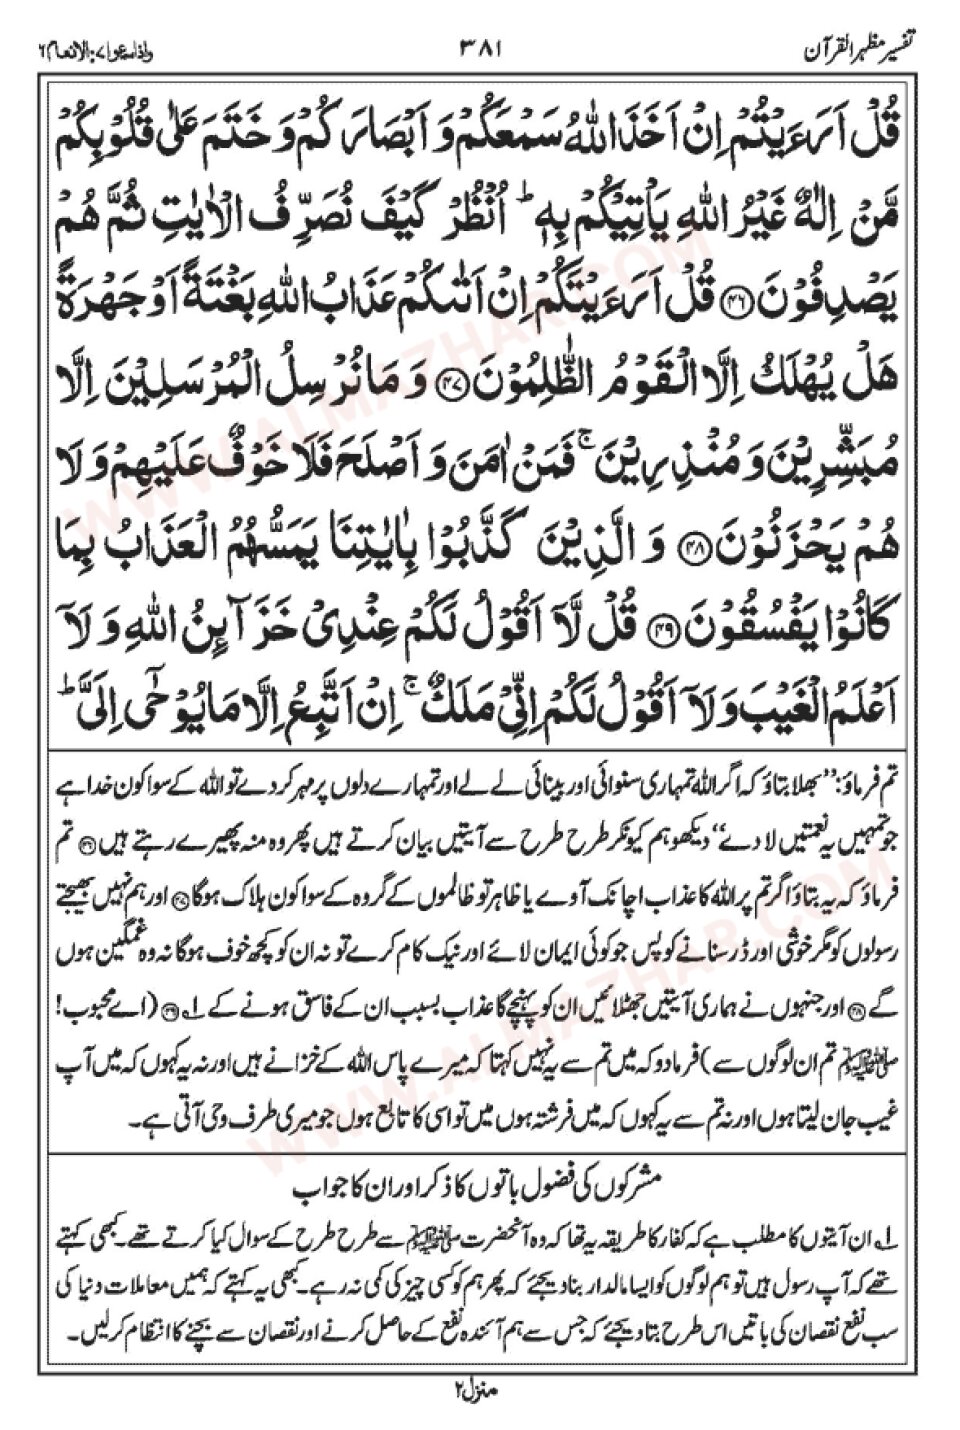 تفسیر مظہر القرآن
۳۸۱
واذاسمعوا۷:الانعام۶
قُلْ اَرَءَیْتُمْ اِنْ اَخَذَ اللّٰهُ سَمْعَكُمْ وَ اَبْصَارَكُمْ وَ خَتَمَ عَلٰی قُلُوْبِكُمْ
مَّنْ اِلٰهٌ غَیْرُ اللّٰهِ یَاْتِیْكُمْ بِهٖ ؕ اُنْظُرْ كَیْفَ نُصَرِّفُ الْاٰیٰتِ ثُمَّ هُمْ
یَصْدِفُوْنَ ﴿۴۶﴾ قُلْ اَرَءَیْتَكُمْ اِنْ اَتٰىكُمْ عَذَابُ اللّٰهِ بَغْتَةً اَوْ جَهْرَةً
هَلْ یُهْلَكُ اِلَّا الْقَوْمُ الظّٰلِمُوْنَ ﴿۴۷﴾ وَ مَا نُرْسِلُ الْمُرْسَلِیْنَ اِلَّا
مُبَشِّرِیْنَ وَ مُنْذِرِیْنَ ۚ فَمَنْ اٰمَنَ وَ اَصْلَحَ فَلَا خَوْفٌ عَلَیْهِمْ وَ لَا
هُمْ یَحْزَنُوْنَ ﴿۴۸﴾ وَ الَّذِیْنَ كَذَّبُوْا بِاٰیٰتِنَا یَمَسُّهُمُ الْعَذَابُ بِمَا
كَانُوْا یَفْسُقُوْنَ ﴿۴۹﴾ قُلْ لَّاۤ اَقُوْلُ لَكُمْ عِنْدِیْ خَزَآىِٕنُ اللّٰهِ وَ لَاۤ
اَعْلَمُ الْغَیْبَ وَ لَاۤ اَقُوْلُ لَكُمْ اِنِّیْ مَلَكٌ ۚ اِنْ اَتَّبِعُ اِلَّا مَا یُوْحٰۤی اِلَیَّ ؕ
تم فرماؤ: ”بھلا بتاؤ کہ اگر اللہ تمہاری سنوائی اور بینائی لے لے اور تمہارے دلوں پر مہر کر دے تو اللہ کے سوا کون خدا ہے
جو تمہیں یہ نعمتیں لا دے“ دیکھو ہم کیونکر طرح طرح سے آیتیں بیان کرتے ہیں پھر وہ منہ پھیرے رہتے ہیں ﴿۴۶﴾ تم
فرماؤ کہ یہ بتاؤ اگر تم پر اللہ کا عذاب اچانک آوے یا ظاہر تو ظالموں کے گروہ کے سوا کون ہلاک ہوگا ﴿۴۷﴾ اور ہم نہیں بھیجتے
رسولوں کو مگر خوشی اور ڈر سنانے کو پس جو کوئی ایمان لائے اور نیک کام کرے تو نہ ان کو کچھ خوف ہوگا نہ وہ غمگین ہوں
گے ﴿۴۸﴾ اور جنہوں نے ہماری آیتیں جھٹلائیں ان کو پہنچے گا عذاب بسبب ان کے فاسق ہونے کے ۱؎ ﴿۴۹﴾ (اے محبوب!
ﷺ تم ان لوگوں سے) فرما دو کہ میں تم سے یہ نہیں کہتا کہ میرے پاس اللہ کے خزانے ہیں اور نہ یہ کہوں کہ میں آپ
غیب جان لیتا ہوں اور نہ تم سے یہ کہوں کہ میں فرشتہ ہوں میں تو اسی کا تابع ہوں جو میری طرف وحی آتی ہے۔
مشرکوں کی فضول باتوں کا ذکر اور ان کا جواب
۱؎ ان آیتوں کا مطلب ہے کہ کفار کا طریقہ یہ تھا کہ وہ آنحضرت ﷺ سے طرح طرح کے سوال کیا کرتے تھے۔ کبھی کہتے
تھے کہ آپ رسول ہیں تو ہم لوگوں کو ایسا مالدار بنا دیجئے کہ پھر ہم کو کسی چیز کی کمی نہ رہے۔ کبھی یہ کہتے کہ ہمیں معاملات دنیا کی
سب نفع نقصان کی باتیں اس طرح بتا دیجئے کہ جس سے ہم آئندہ نفع کے حاصل کرنے اور نقصان سے بچنے کا انتظام کرلیں۔
منزل۲
WWW.ALMAZHAR.COM
WWW.ALMAZHAR.COM